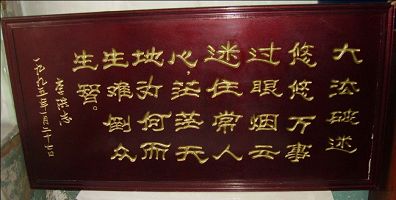 大法破迷
悠悠万事
过眼烟云
迷住常人
心，茫茫天
地为何而
生难倒众
生智。
李洪志
一九九五年一月二十七日